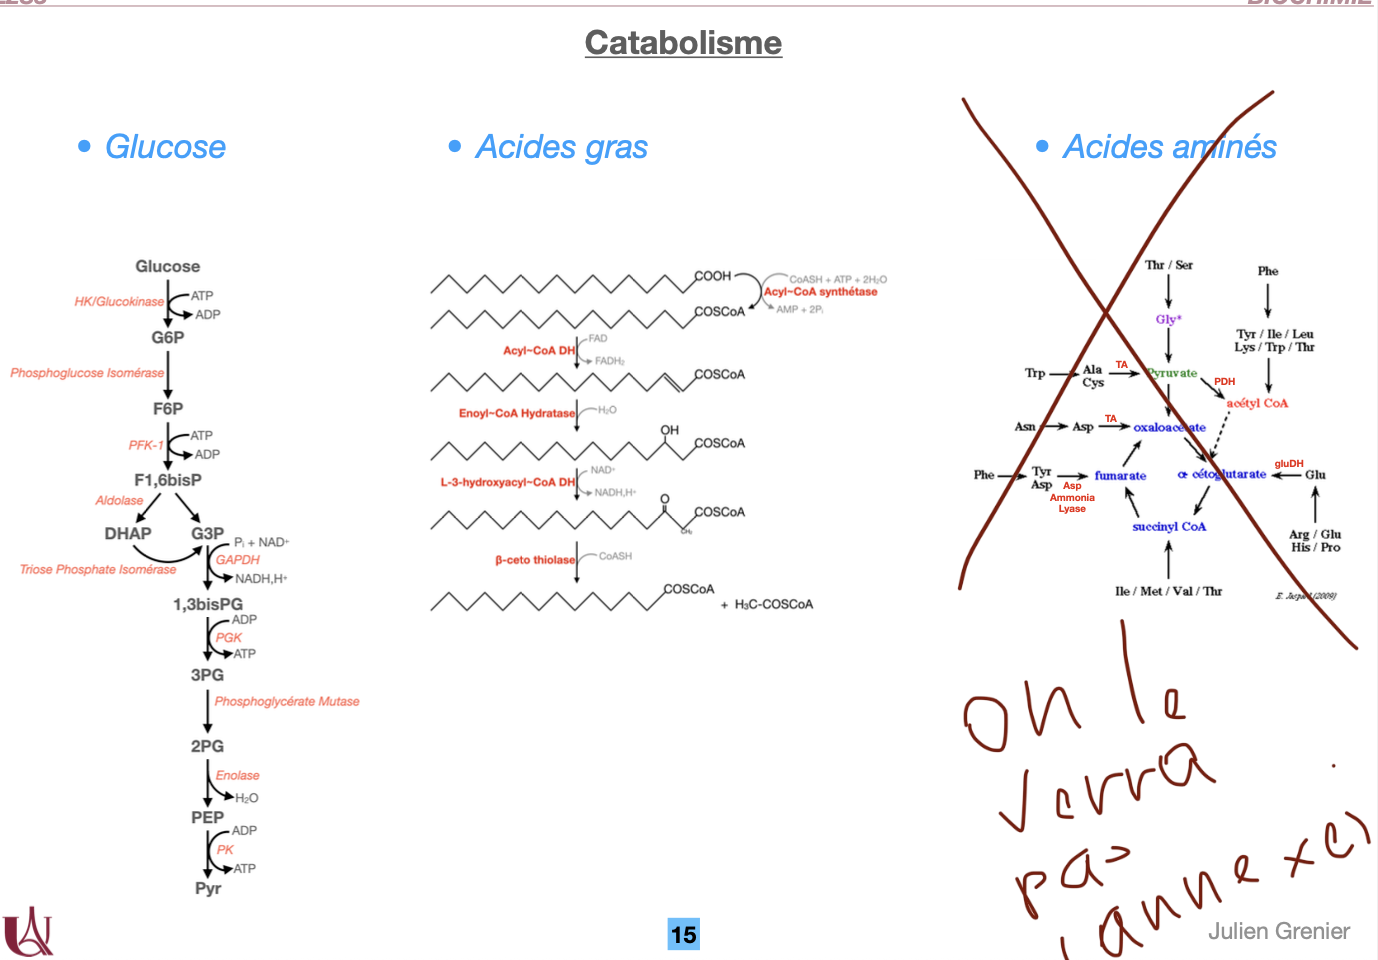 BIOCHIMIE
Catabolisme
• Glucose
Glucose
HK/Glucokinase
ATP
ADP
G6P
Phosphoglucose Isomérase
F6P
PFK-1
ATP
ADP
F1,6bisP
Aldolase
DHAP
G3P
Triose Phosphate Isomérase
Pi + NAD+
GAPDH
NADH,H+
1,3bisPG
ADP
PGK
ATP
3PG
Phosphoglycérate Mutase
2PG
Enolase
H₂O
PEP
ADP
PK
ATP
Pyr
• Acides gras
COOH
CoASH + ATP + 2H₂O
Acyl~CoA synthétase
AMP + 2Pi
COSCoA
Acyl~CoA DH
FAD
FADH₂
COSCoA
Enoyl~CoA Hydratase
H₂O
OH
COSCoA
L-3-hydroxyacyl~CoA DH
NAD+
NADH,H+
O
COSCoA
CH₂
β-ceto thiolase
CoASH
COSCoA
+ H₃C-COSCoA
• Acides aminés
Thr / Ser
Phe
Gly*
Tyr / Ile / Leu
Lys / Trp / Thr
Trp
Ala
Cys
TA
Pyruvate
PDH
acétyl CoA
Asn
Asp
TA
oxaloacétate
Phe
Tyr
Asp
Asp
Ammonia
Lyase
fumarate
α- cétoglutarate
gluDH
Glu
succinyl CoA
Arg / Glu
His / Pro
Ile / Met / Val / Thr
E. Jaspard (2009)
on le
verra
pas
15
Julien Grenier